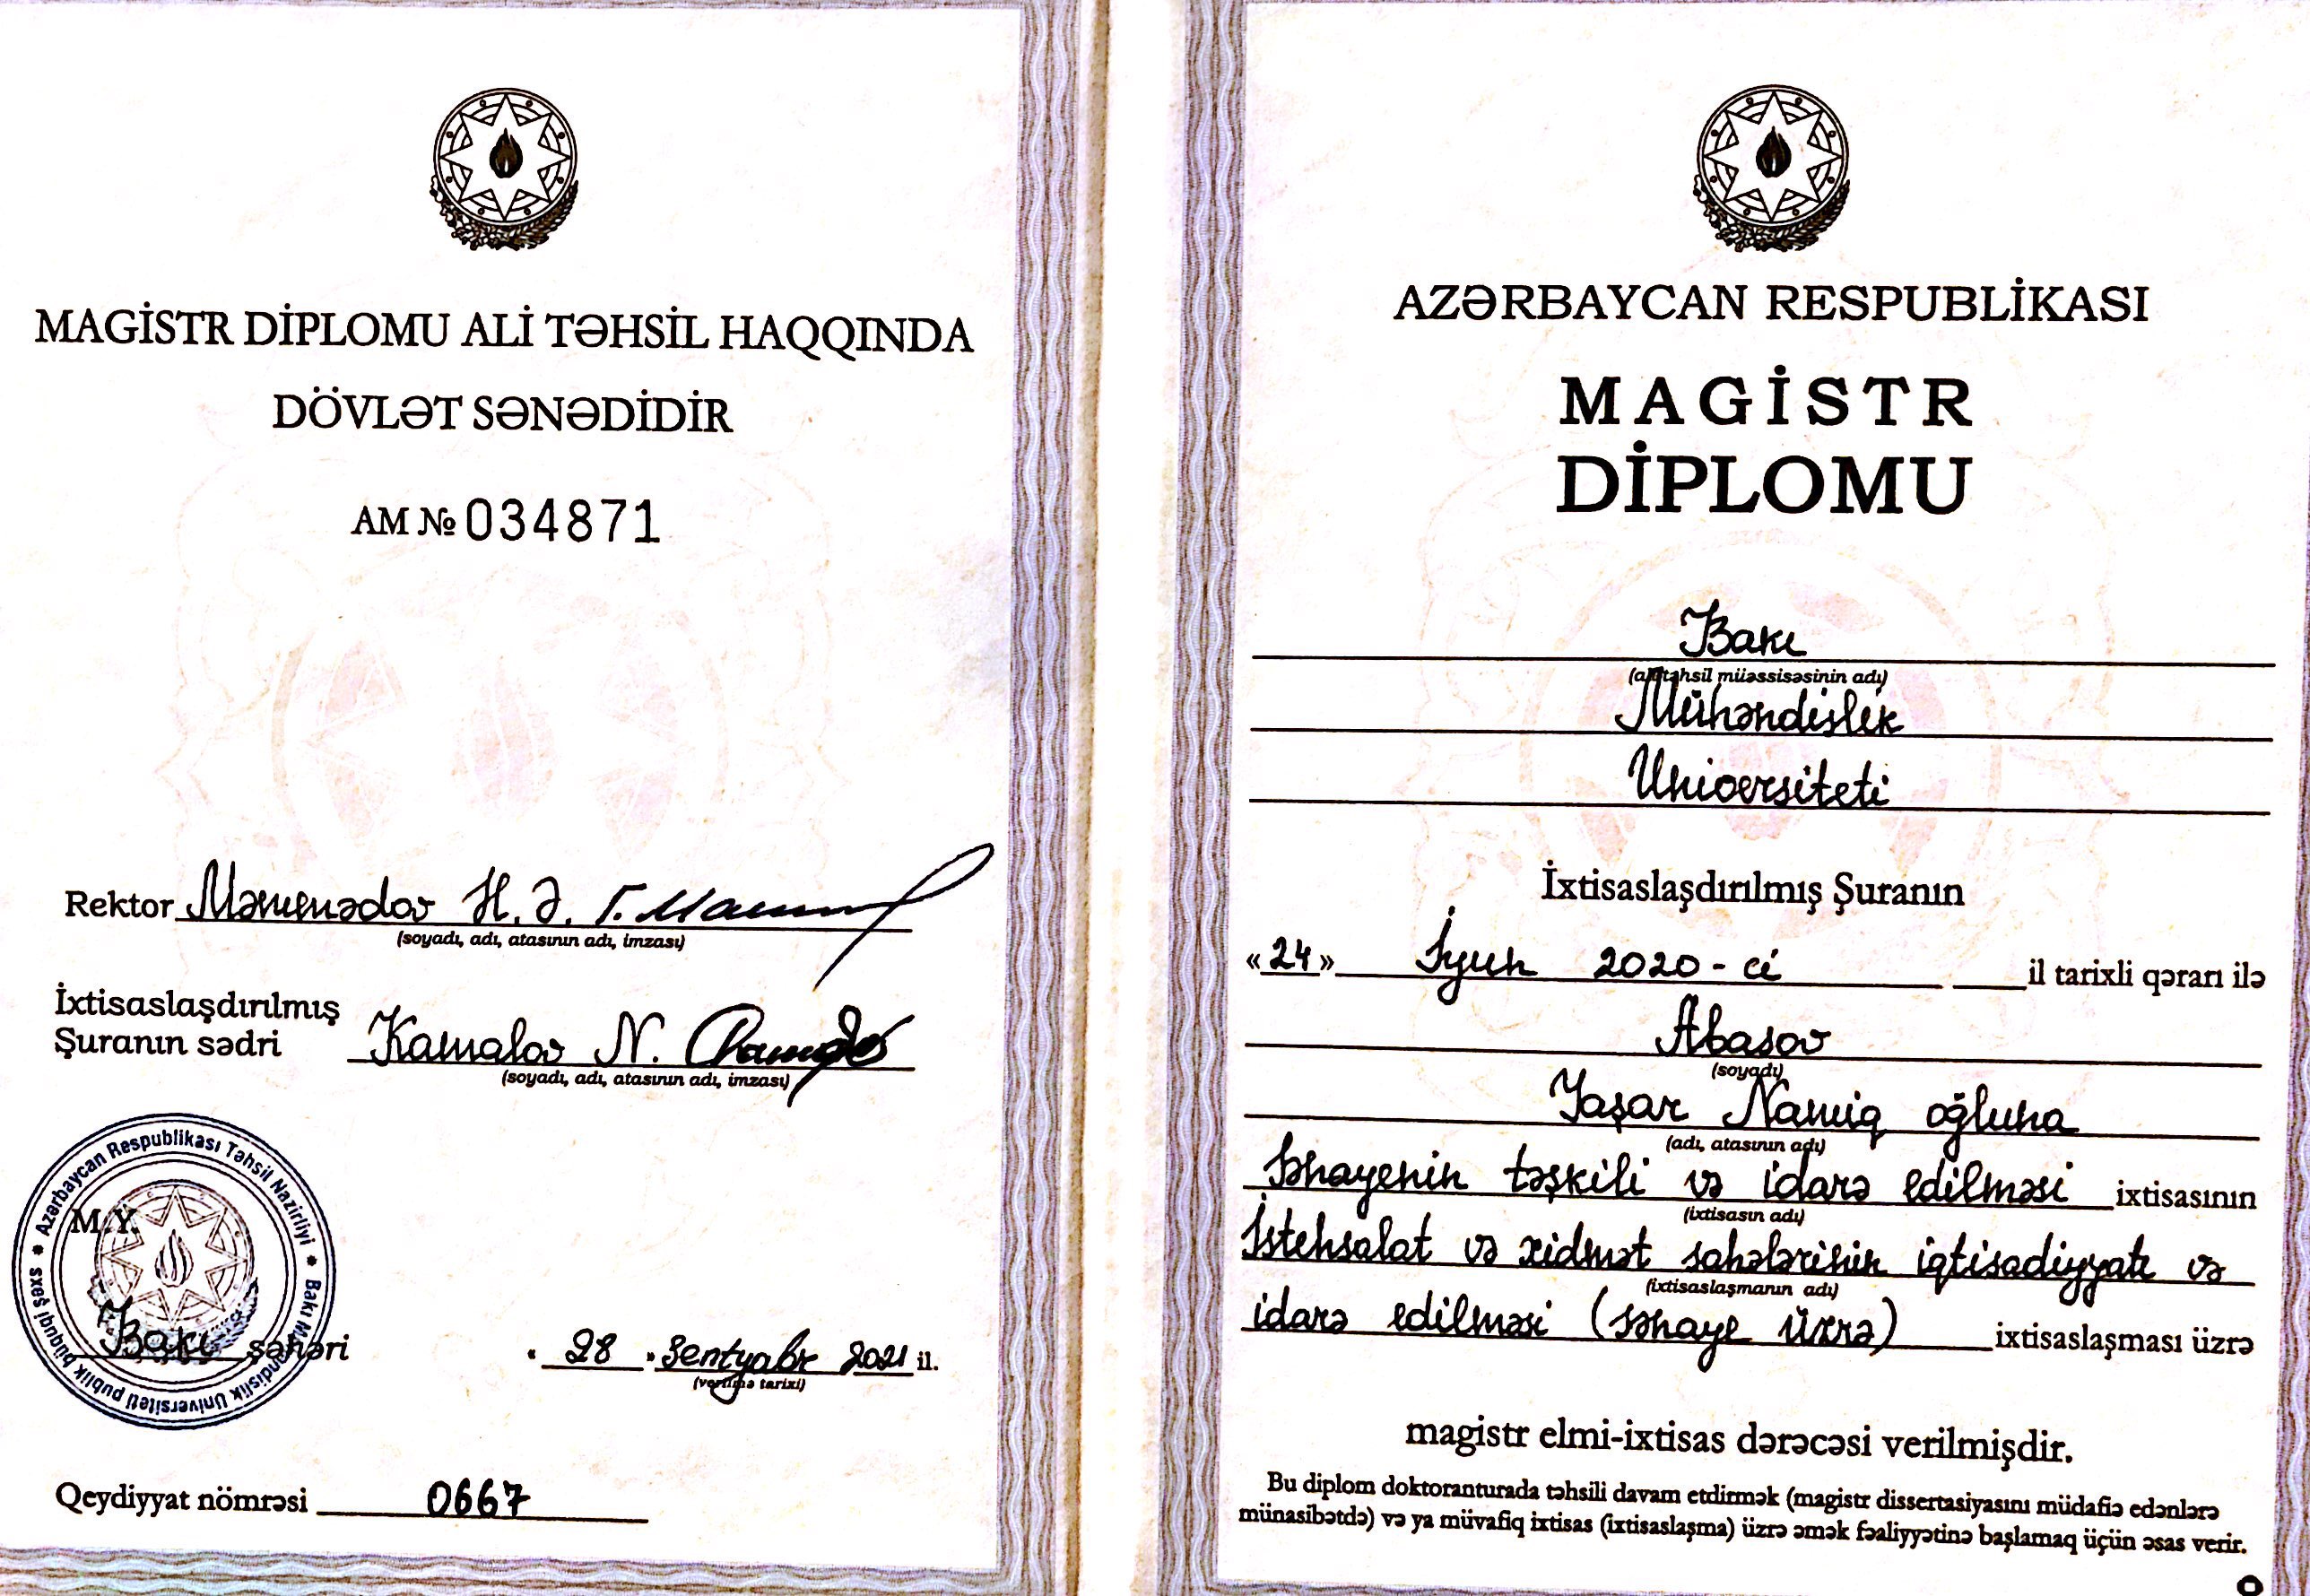 MAGİSTR DİPLOMU ALİ TƏHSİL HAQQINDA
DÖVLƏT SƏNƏDİDİR
AM № 034871
Rektor Məmmədov H. Ə.
(soyadı, adı, atasının adı, imzası)
İxtisaslaşdırılmış
Şuranın sədri Kamalov N.
(soyadı, adı, atasının adı, imzası)
Azərbaycan Respublikası Təhsil Nazirliyi * Bakı Mühəndislik Universiteti publik hüquqi şəxs *
M.Y.
Bakı şəhəri
" 28 " Sentyabr 2021 il.
(verilmə tarixi)
Qeydiyyat nömrəsi 0667
AZƏRBAYCAN RESPUBLİKASI
MAGİSTR
DİPLOMU
Bakı
(ali təhsil müəssisəsinin adı)
Mühəndislik
Universiteti
İxtisaslaşdırılmış Şuranın
«24» İyun 2020-ci il tarixli qərarı ilə
Abasov
(soyadı)
Yaşar Namiq oğluna
(adı, atasının adı)
Sənayenin təşkili və idarə edilməsi ixtisasının
(ixtisasın adı)
İstehsalat və xidmət sahələrinin iqtisadiyyatı və
(ixtisaslaşmanın adı)
idarə edilməsi (sənaye üzrə) ixtisaslaşması üzrə
magistr elmi-ixtisas dərəcəsi verilmişdir.
Bu diplom doktoranturada təhsili davam etdirmək (magistr dissertasiyasını müdafiə edənlərə
münasibətdə) və ya müvafiq ixtisas (ixtisaslaşma) üzrə əmək fəaliyyətinə başlamaq üçün əsas verir.